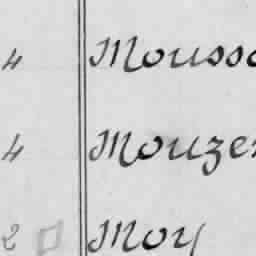 4 Mousso
4 Mouzer
2 Moy